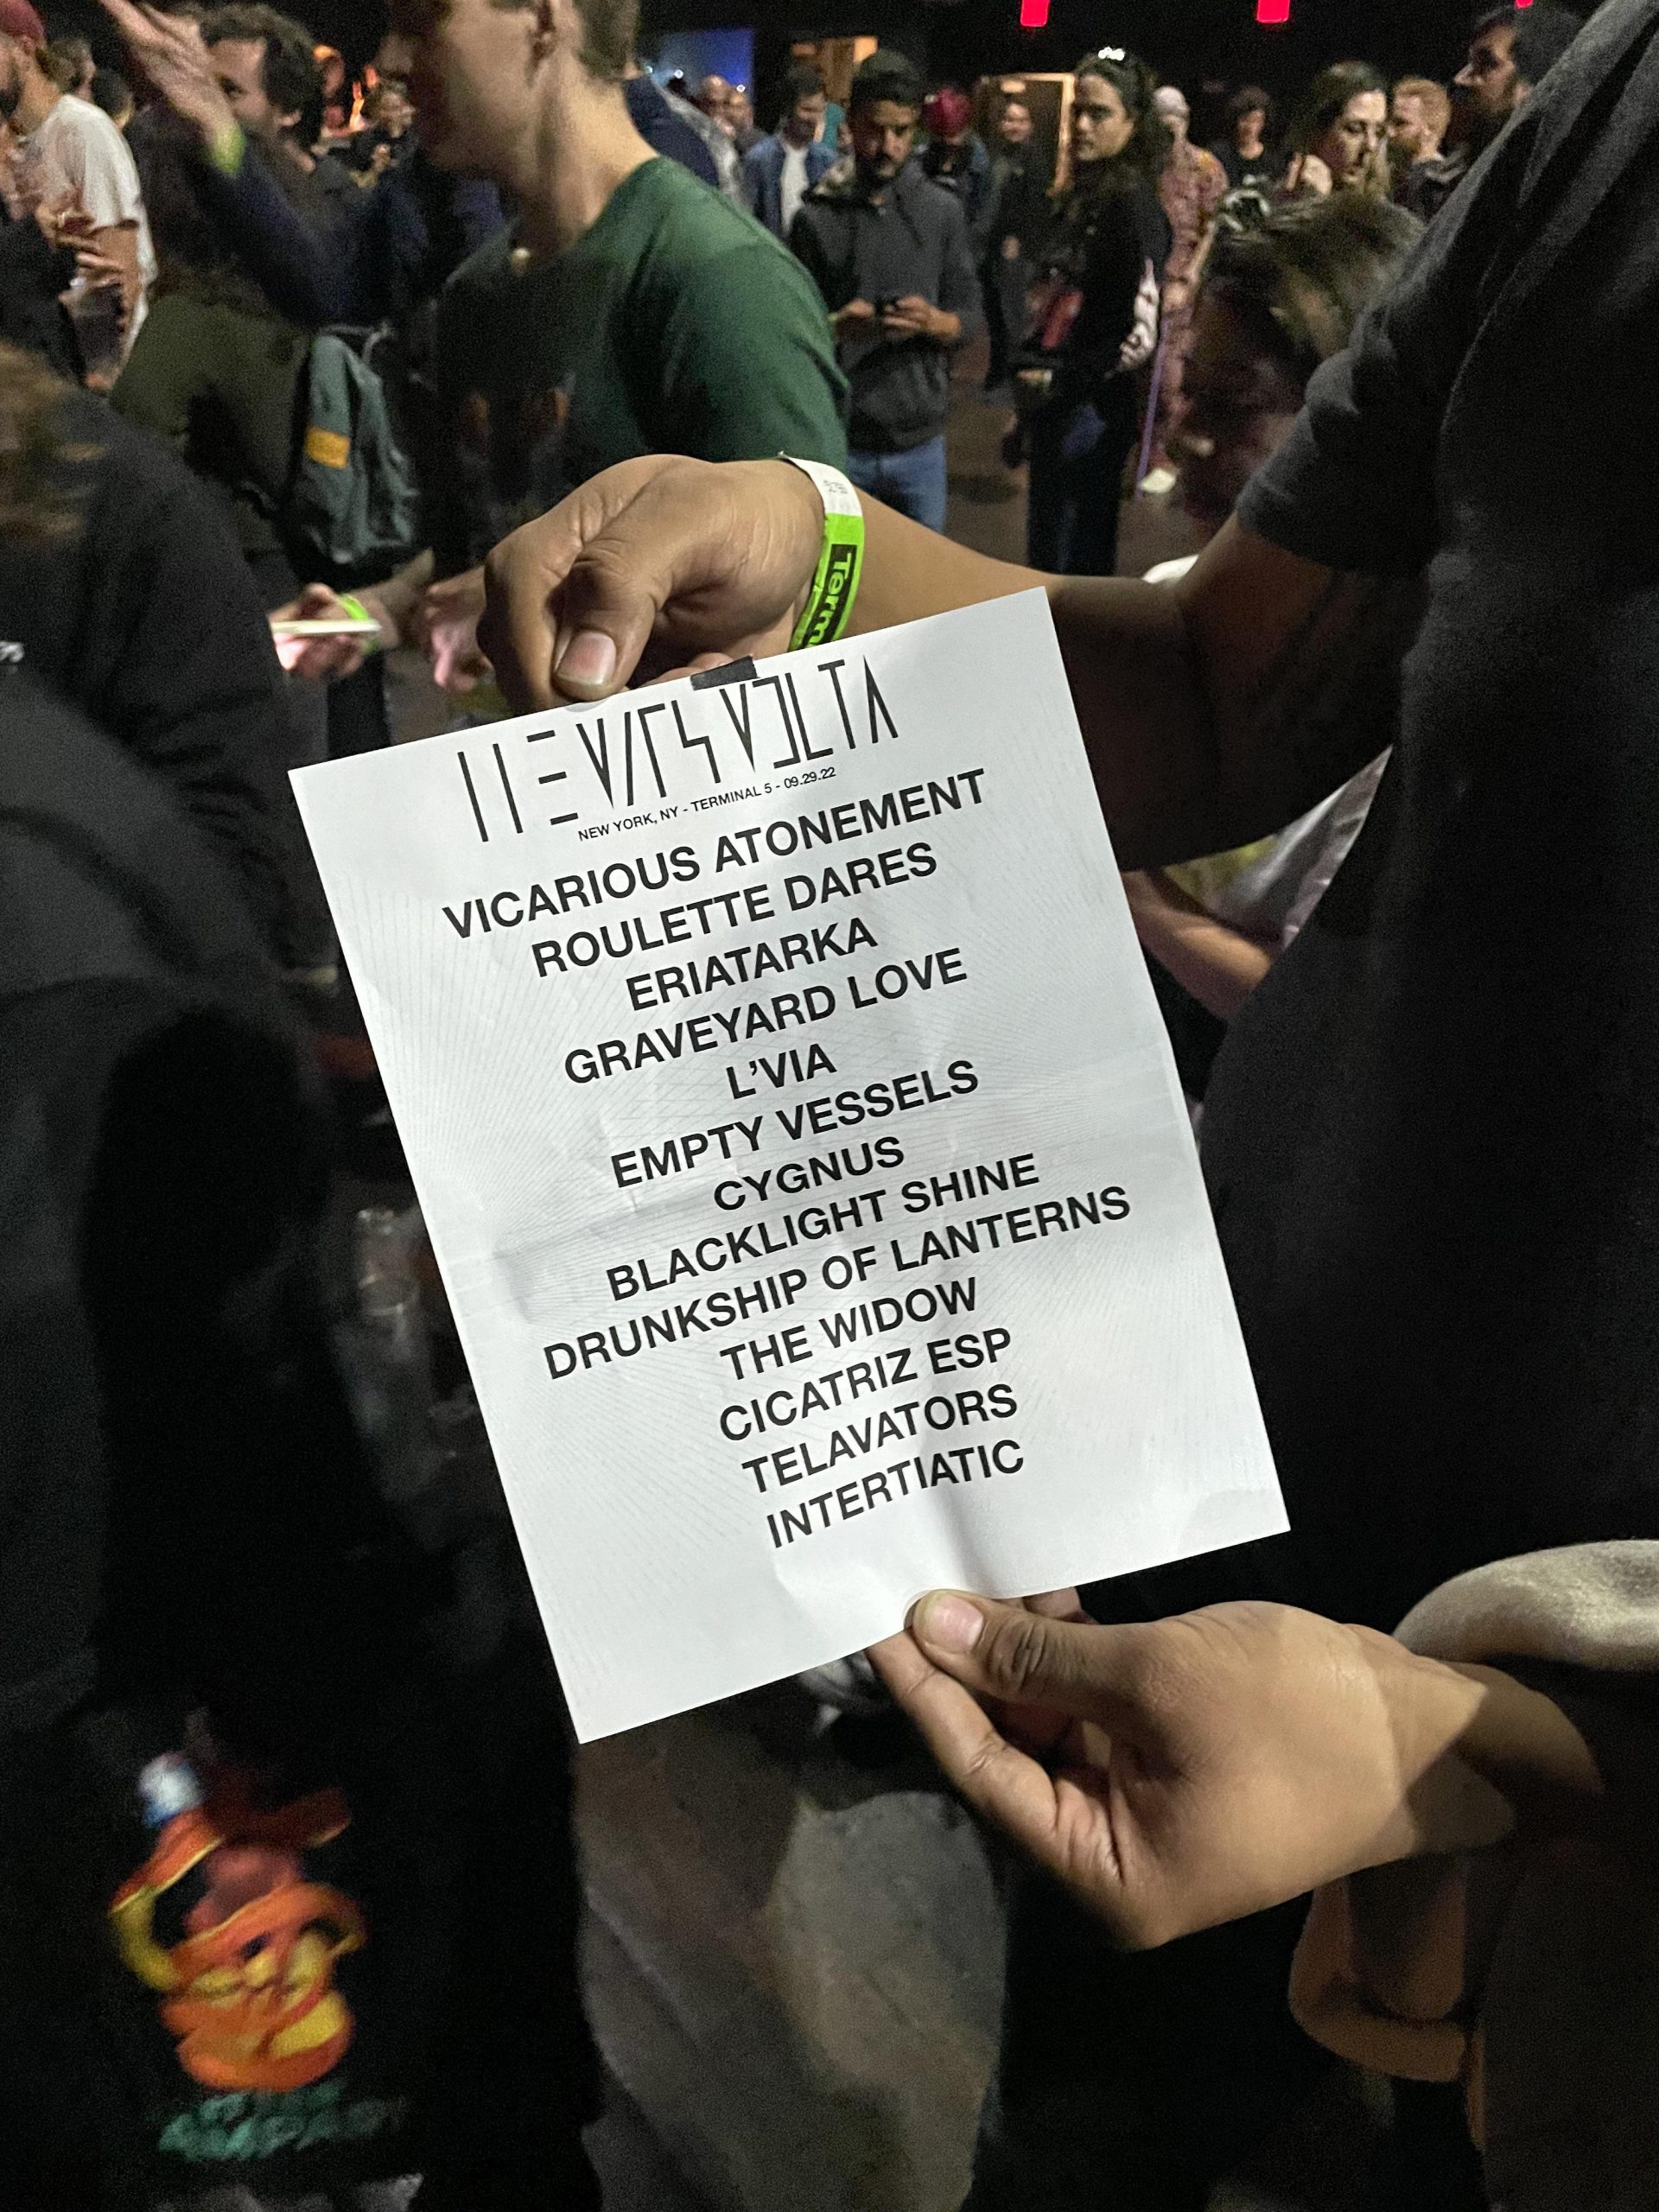 Term
THE MARS VOLTA
NEW YORK, NY - TERMINAL 5 - 09.29.22
VICARIOUS ATONEMENT
ROULETTE DARES
ERIATARKA
GRAVEYARD LOVE
L’VIA
EMPTY VESSELS
CYGNUS
BLACKLIGHT SHINE
DRUNKSHIP OF LANTERNS
THE WIDOW
CICATRIZ ESP
TELAVATORS
INTERTIATIC